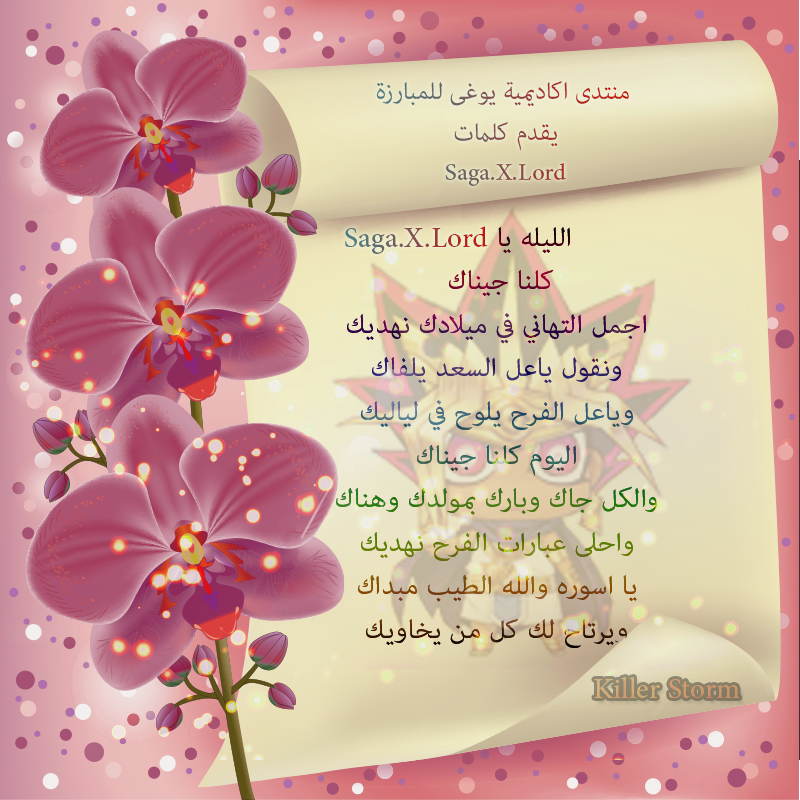 منتدى اكاديمية يوغى للمبارزة
يقدم كلمات
Saga.X.Lord
الليله يا Saga.X.Lord
كلنا جيناك
اجمل التهاني في ميلادك نهديك
ونقول ياعل السعد يلفاك
وياعل الفرح يلوح في لياليك
اليوم كلنا جيناك
والكل جاك وبارك بمولدك وهناك
واحلى عبارات الفرح نهديك
يا اسوره والله الطيب مبداك
ويرتاح لك كل من يخاويك
Killer Storm